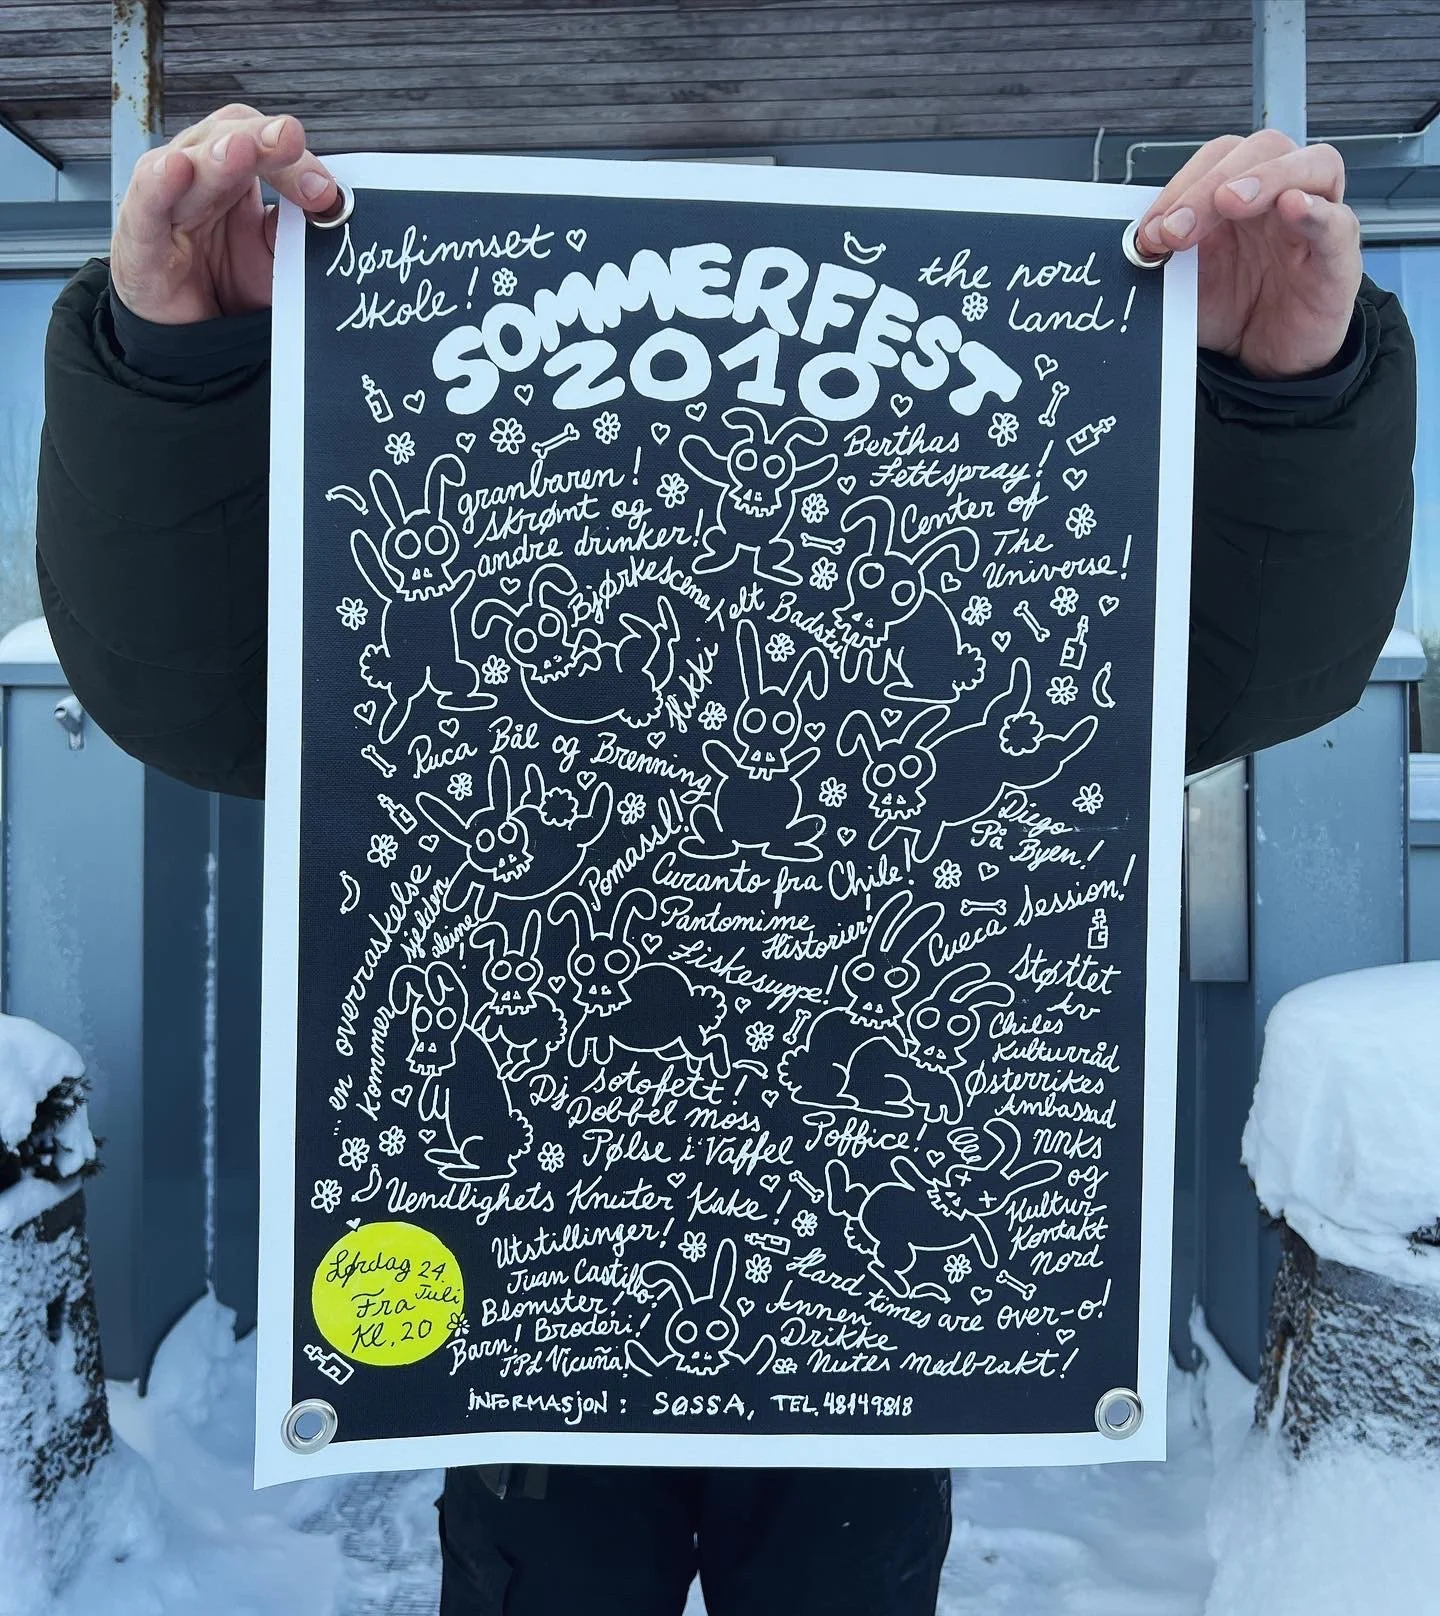 Sørfinnset
skole!
the nord
land!
SOMMERFEST
2010
Berthas
Fettspray!
granbaren!
skrømt og
andre drinker!
Center of
The
Universe!
Bjørkescena
Telt Badstu
Hikki
Ruca Bål og Brenning
Pomassl!
Diego
På Byen!
Curanto fra Chile!
Cueca Session!
Pantomime
Historier!
Fiskesuppe!
... en overraskelse
kommer sjelden
aleine!
Støttet
Av
Chiles
Kulturråd
Østerrikes
Ambassad
NNKS
og
Kultur-
Kontakt
Nord
Dj Sotofett!
Dobbel Moss
Pølse i Vaffel
Poffice!
Uendlighets Knuter Kake!
Utstillinger!
Juan Castillo!
Blomster!
Barn! Broderi!
TPL Vicuña!
Lørdag 24.
Juli
Fra
Kl. 20
Hard times are over-o!
Annen
Drikke
Nytes medbrakt!
INFORMASJON: SØSSA, TEL. 48149818